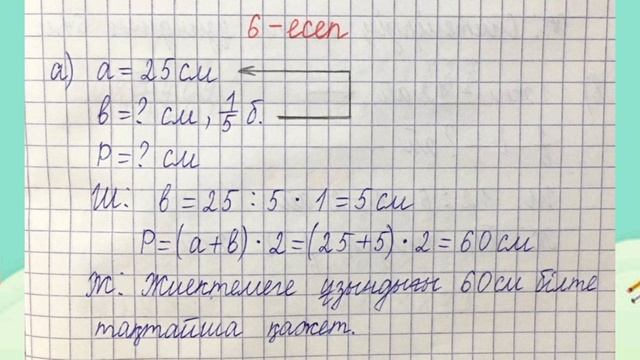 6-есеп
а) a = 25 см
в = ? см, 1/5 б.
P = ? см
Ш: в = 25 : 5 · 1 = 5 см
P = (а + в) · 2 = (25 + 5) · 2 = 60 см
Ж: Жиектемеге ұзындығы 60 см білте
тақтайша қажет.